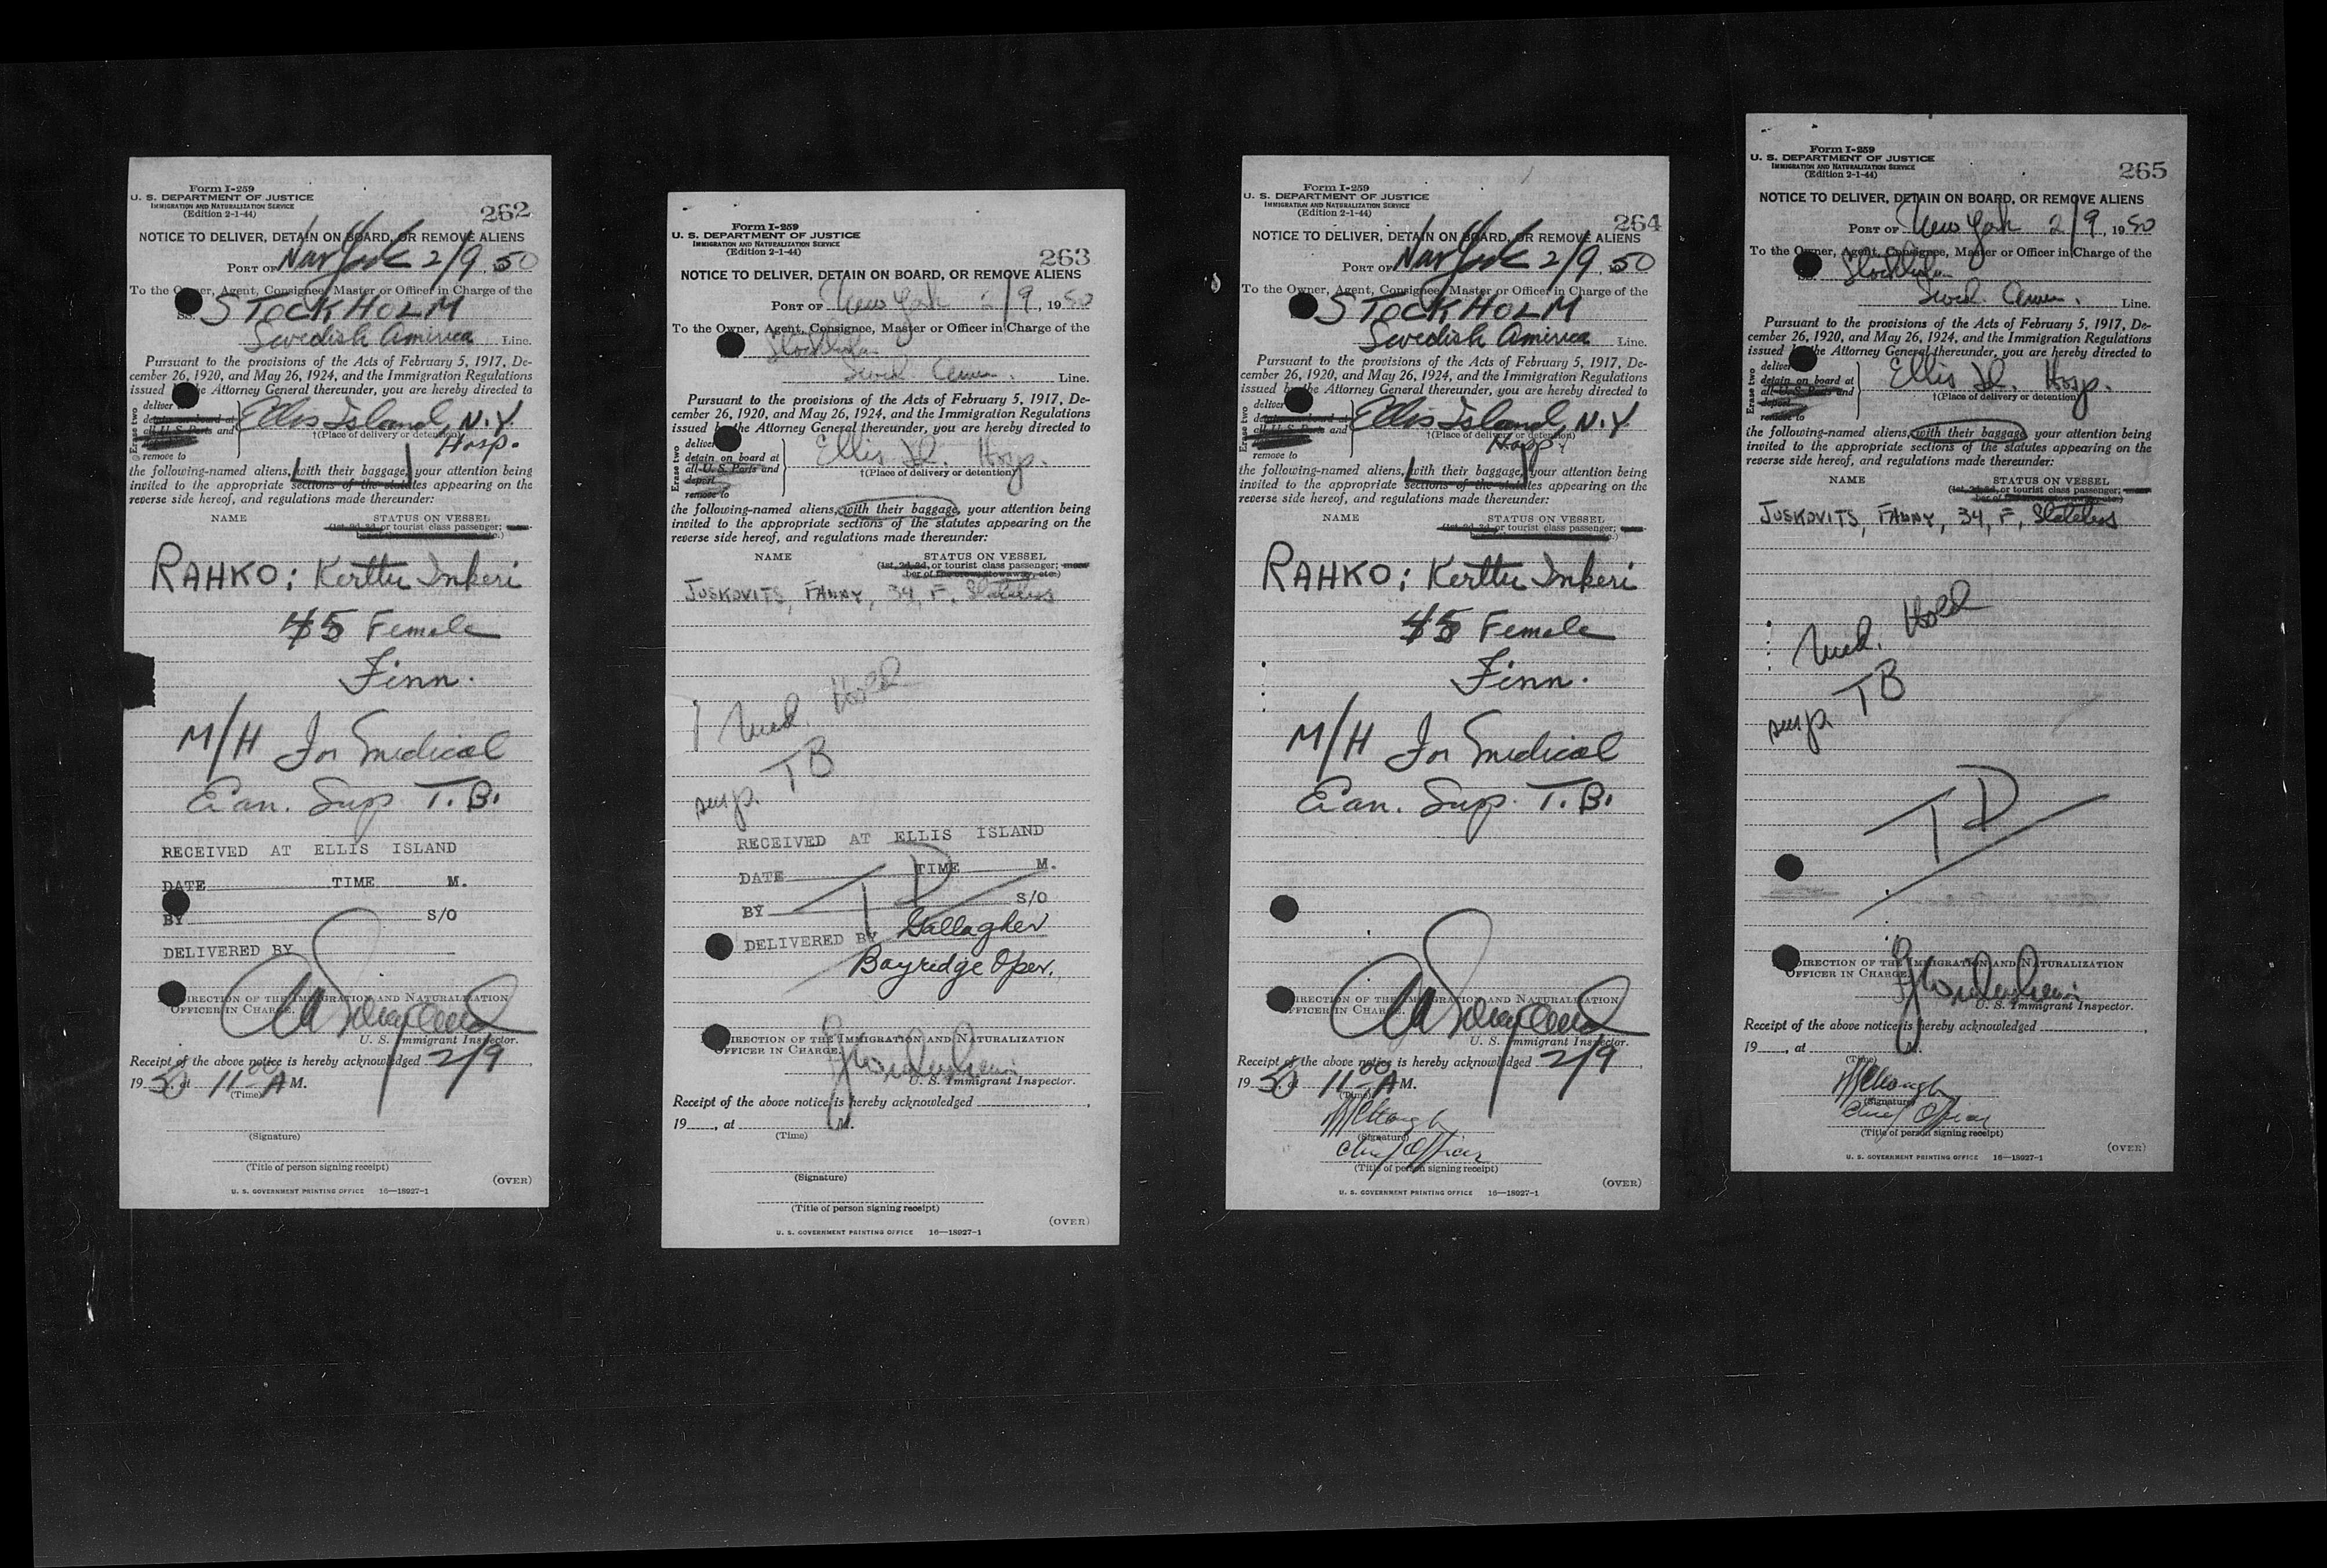 Form I-259
U. S. DEPARTMENT OF JUSTICE
IMMIGRATION AND NATURALIZATION SERVICE
(Edition 2-1-44)
262
NOTICE TO DELIVER, DETAIN ON BOARD, OR REMOVE ALIENS
PORT OF New York 2/9, 1950
To the Owner, Agent, Consignee, Master or Officer in Charge of the
SS. STOCKHOLM
Swedish America Line.
Pursuant to the provisions of the Acts of February 5, 1917, De-
cember 26, 1920, and May 26, 1924, and the Immigration Regulations
issued by the Attorney General thereunder, you are hereby directed to
Erase two
deliver
detain on board at
all U. S. Ports and
remove to
Ellis Island, N.Y
†(Place of delivery or detention)
Hosp.
the following-named aliens, with their baggage, your attention being
invited to the appropriate sections of the statutes appearing on the
reverse side hereof, and regulations made thereunder:
NAME STATUS ON VESSEL
(1st, 2d, 3d, or tourist class passenger;
RAHKO; Kerttu Inkeri
45 Female
Finn.
M/H For Medical
Exam. Susp. T.B.
RECEIVED AT ELLIS ISLAND
DATE TIME M.
BY S/O
DELIVERED BY
DIRECTION OF THE IMMIGRATION AND NATURALIZATION
OFFICER IN CHARGE.
U. S. Immigrant Inspector.
Receipt of the above notice is hereby acknowledged 2/9,
1950, at 11 00 A M.
(Time)
(Signature)
(Title of person signing receipt)
(OVER)
U. S. GOVERNMENT PRINTING OFFICE 16—18927-1
Form I-259
U. S. DEPARTMENT OF JUSTICE
IMMIGRATION AND NATURALIZATION SERVICE
(Edition 2-1-44)
263
NOTICE TO DELIVER, DETAIN ON BOARD, OR REMOVE ALIENS
PORT OF New York 2/9, 1950
To the Owner, Agent, Consignee, Master or Officer in Charge of the
Stockholm
Swed. Amer. Line.
Pursuant to the provisions of the Acts of February 5, 1917, De-
cember 26, 1920, and May 26, 1924, and the Immigration Regulations
issued by the Attorney General thereunder, you are hereby directed to
Erase two
deliver
detain on board at
all U. S. Ports and
deport
remove to
Ellis Isl. Hosp.
†(Place of delivery or detention)
the following-named aliens, with their baggage, your attention being
invited to the appropriate sections of the statutes appearing on the
reverse side hereof, and regulations made thereunder:
NAME STATUS ON VESSEL
(1st, 2d, 3d, or tourist class passenger; mem-
ber of the crew, stowaway, etc.)
JUSKOVITS, FANNY, 34, F, Stateless
Med. Hold
susp. TB
RECEIVED AT ELLIS ISLAND
DATE TIME M.
TD
BY S/O
DELIVERED BY Gallagher
Bayridge Oper.
DIRECTION OF THE IMMIGRATION AND NATURALIZATION
OFFICER IN CHARGE.
U. S. Immigrant Inspector.
Receipt of the above notice is hereby acknowledged ,
19 , at M.
(Time)
(Signature)
(Title of person signing receipt)
(OVER)
U. S. GOVERNMENT PRINTING OFFICE 16—18927-1
Form I-259
U. S. DEPARTMENT OF JUSTICE
IMMIGRATION AND NATURALIZATION SERVICE
(Edition 2-1-44)
264
NOTICE TO DELIVER, DETAIN ON BOARD, OR REMOVE ALIENS
PORT OF New York 2/9, 1950
To the Owner, Agent, Consignee, Master or Officer in Charge of the
STOCKHOLM
Swedish America Line.
Pursuant to the provisions of the Acts of February 5, 1917, De-
cember 26, 1920, and May 26, 1924, and the Immigration Regulations
issued by the Attorney General thereunder, you are hereby directed to
Erase two
deliver
detain on board at
all U. S. Ports and
remove to
Ellis Island, N.Y
†(Place of delivery or detention)
Hosp.
the following-named aliens, with their baggage, your attention being
invited to the appropriate sections of the statutes appearing on the
reverse side hereof, and regulations made thereunder:
NAME STATUS ON VESSEL
(1st, 2d, 3d, or tourist class passenger;
RAHKO; Kerttu Inkeri
45 Female
Finn.
M/H For Medical
Exam. Susp. T.B.
DIRECTION OF THE IMMIGRATION AND NATURALIZATION
OFFICER IN CHARGE.
U. S. Immigrant Inspector.
Receipt of the above notice is hereby acknowledged 2/9,
1950, at 11 00 A M.
(Time)
(Signature)
Chief Officer
(Title of person signing receipt)
(OVER)
U. S. GOVERNMENT PRINTING OFFICE 16—18927-1
Form I-259
U. S. DEPARTMENT OF JUSTICE
IMMIGRATION AND NATURALIZATION SERVICE
(Edition 2-1-44)
265
NOTICE TO DELIVER, DETAIN ON BOARD, OR REMOVE ALIENS
PORT OF New York 2/9, 1950
To the Owner, Agent, Consignee, Master or Officer in Charge of the
SS. Stockholm
Swed. Amer. Line.
Pursuant to the provisions of the Acts of February 5, 1917, De-
cember 26, 1920, and May 26, 1924, and the Immigration Regulations
issued by the Attorney General thereunder, you are hereby directed to
Erase two
deliver
detain on board at
all U. S. Ports and
deport
remove to
Ellis Isl. Hosp.
†(Place of delivery or detention)
the following-named aliens, with their baggage, your attention being
invited to the appropriate sections of the statutes appearing on the
reverse side hereof, and regulations made thereunder:
NAME STATUS ON VESSEL
(1st, 2d, 3d, or tourist class passenger; mem-
ber of the crew, stowaway, etc.)
JUSKOVITS, FANNY, 34, F, Stateless
Med. Hold
susp. TB
TD
DIRECTION OF THE IMMIGRATION AND NATURALIZATION
OFFICER IN CHARGE.
U. S. Immigrant Inspector.
Receipt of the above notice is hereby acknowledged ,
19 , at M.
(Time)
(Signature)
Chief Officer
(Title of person signing receipt)
(OVER)
U. S. GOVERNMENT PRINTING OFFICE 16—18927-1